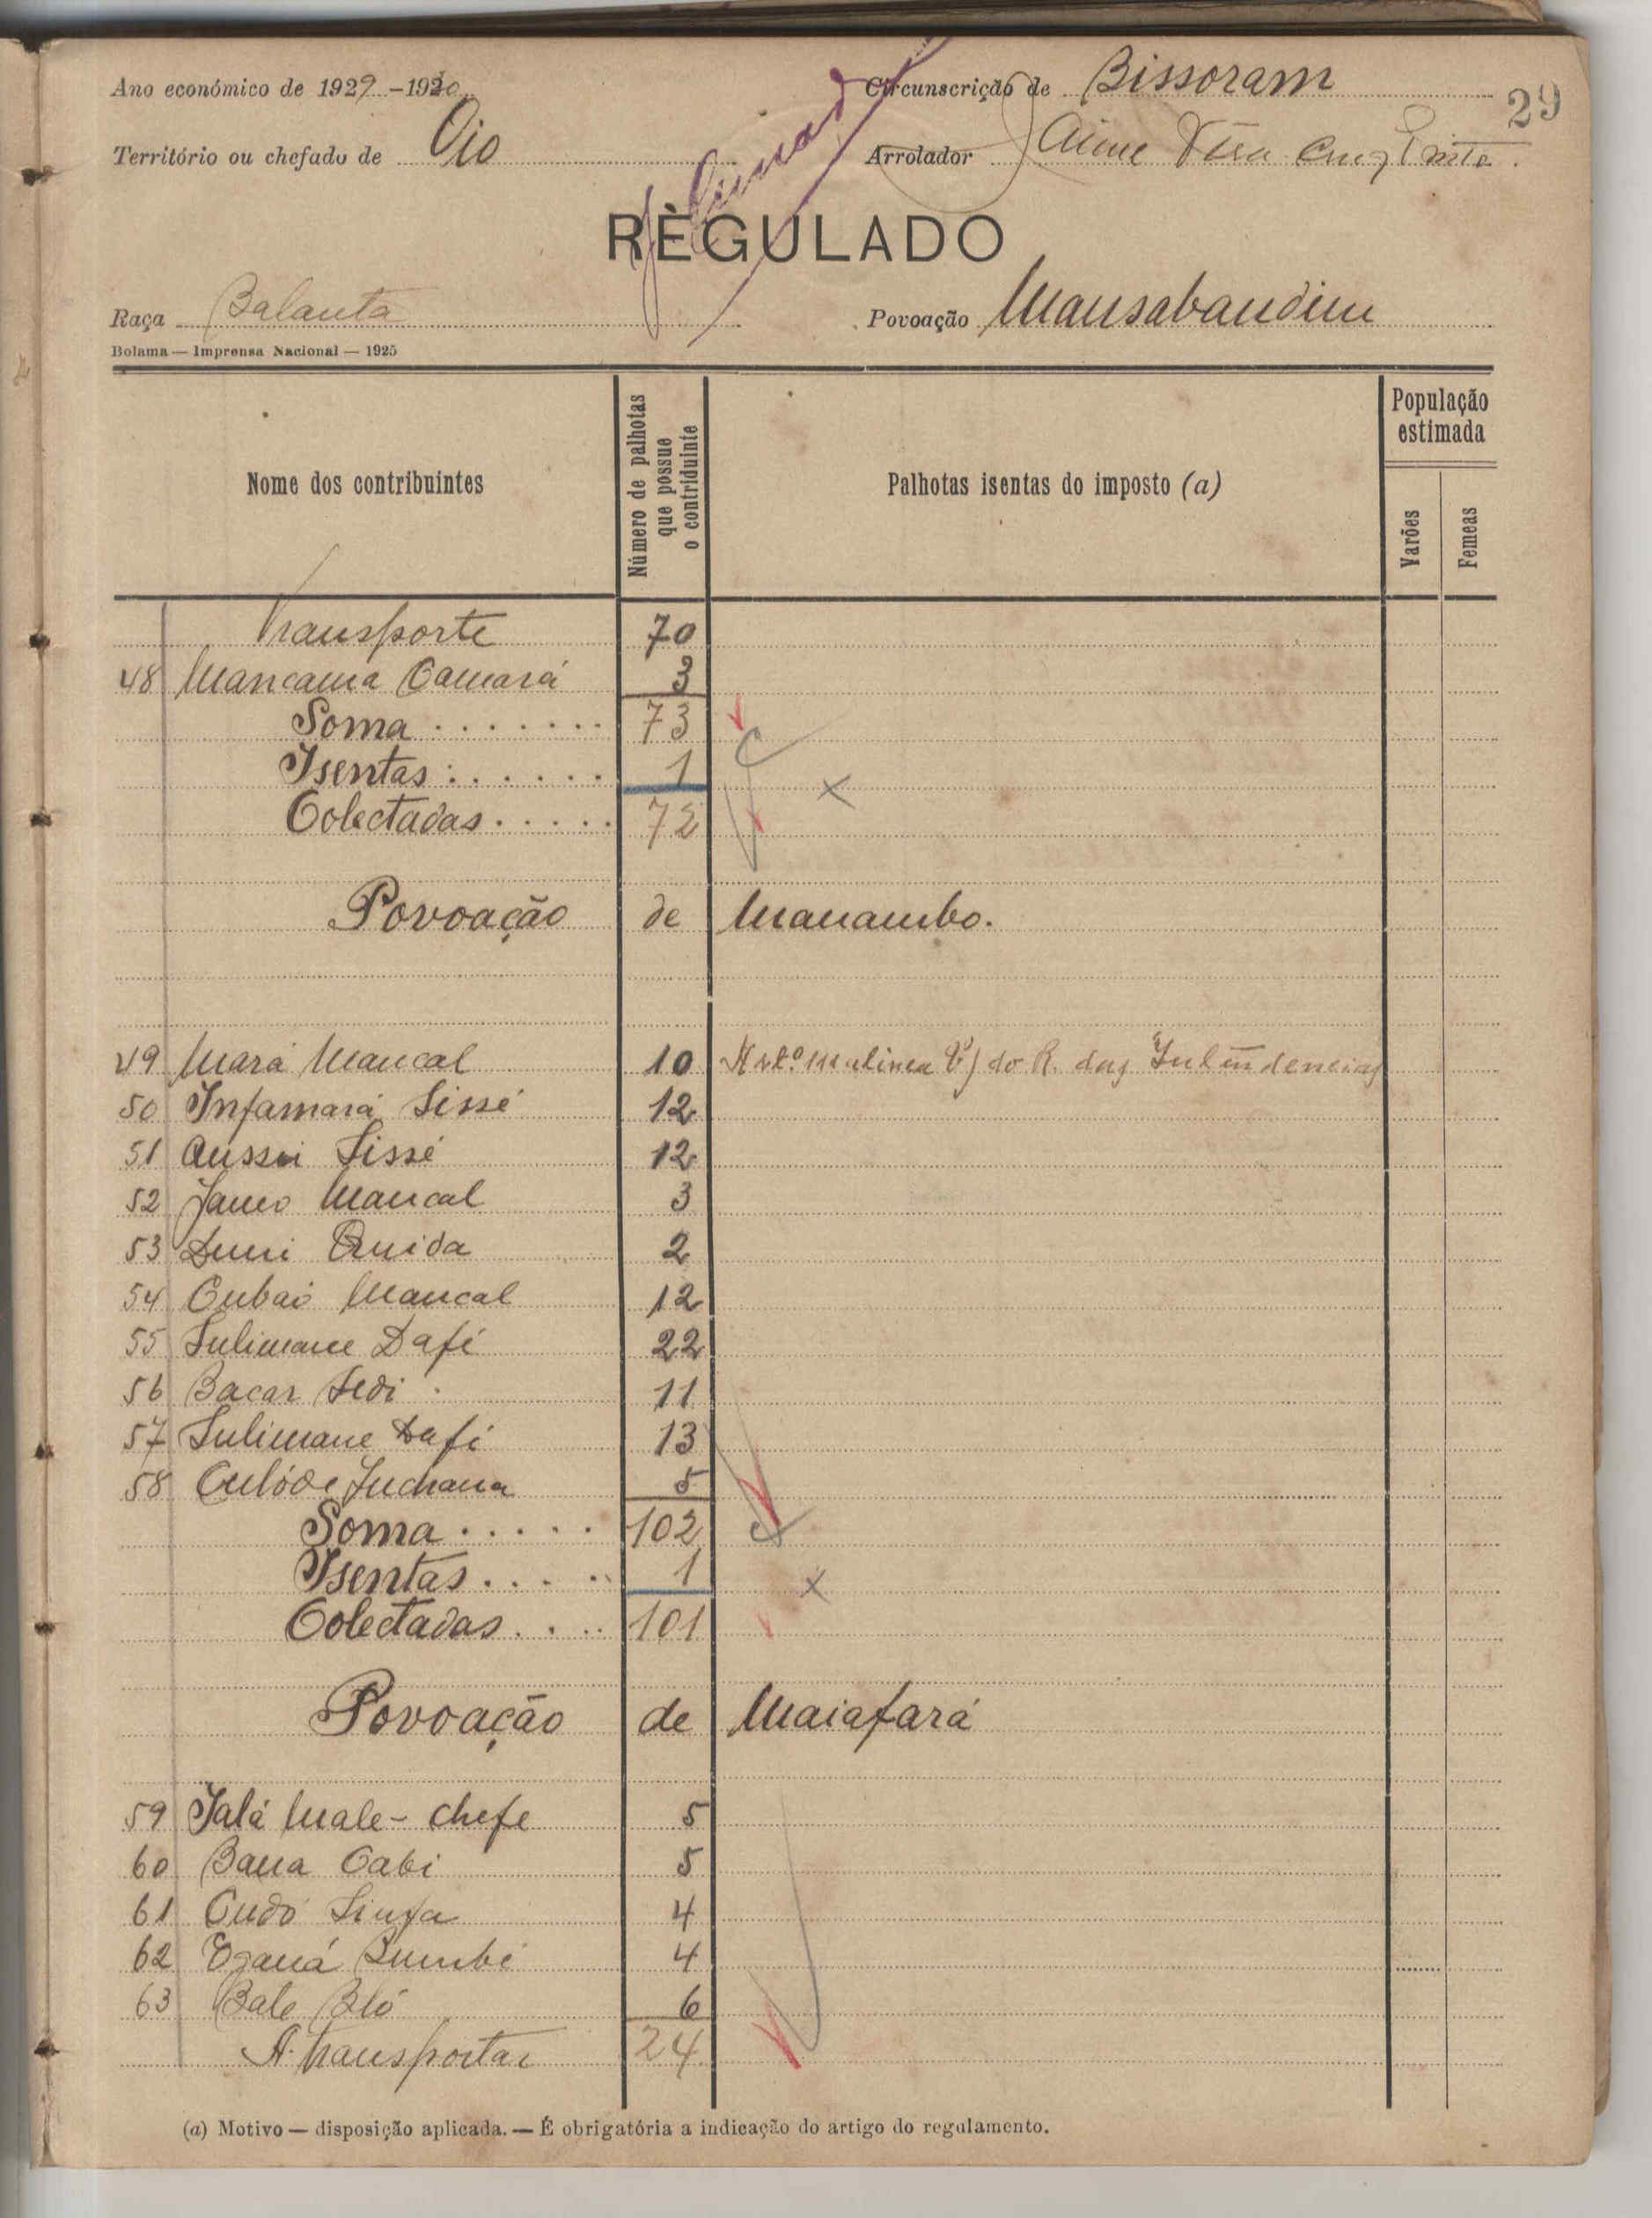 Ano económico de 1929-1930
Circunscrição de Bissoram
29
Território ou chefado de Oio
Arrolador Jaime Vera Cruz Pinto.
RÈGULADO
Raça Balanta
Povoação Mansabandim
Bolama — Imprensa Nacional — 1925
Nome dos contribuintes
Número de palhotas que possue o contriduinte
Palhotas isentas do imposto (a)
População estimada
Varões
Femeas
Transporte 70
48 Mancama Camará 3
Soma 73
Isentas 1
Colectadas 72
Povoação de Manambo.
49 Mará Mancal 10
50 Infamará Sissé 12
51 Aussoi Sissé 12
52 Janco Mancal 3
53 Quida 2
54 Cubai Mancal 12
55 Sulimane Dafé 22
56 Bacar Sedi 11
57 Sulimane Dafé 13
58 Juchana 5
Soma 102
Isentas 1
Colectadas 101
Povoação de Maiafará
59 Jalá Male - chefe 5
60 Bana Cabi 5
61 Cudó Sinfa 4
62 4
63 Bale Bló 6
A transportar 24
(a) Motivo — disposição aplicada. — É obrigatória a indicação do artigo do regulamento.